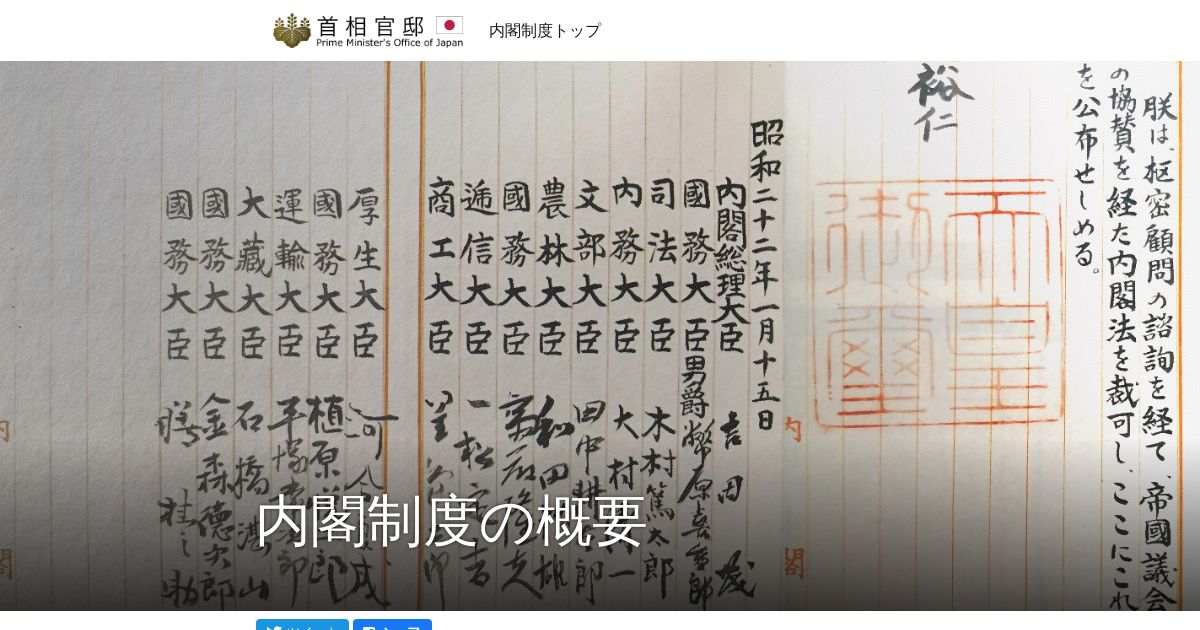 首相官邸
Prime Minister's Office of Japan
内閣制度トップ
朕は、枢密顧問の諮詢を経て、帝國議会
の協賛を経た内閣法を裁可し、ここにこれ
を公布せしめる。
裕仁
天皇御璽
昭和二十二年一月十五日
内閣総理大臣 吉田茂
國務大臣男爵幣原喜重郎
司法大臣 木村篤太郎
内務大臣 大村清一
文部大臣 田中耕太郎
農林大臣 和田博雄
國務大臣 齋藤隆夫
逓信大臣 一松定吉
商工大臣 星島二郎
厚生大臣 河合良成
國務大臣 植原悦二郎
運輸大臣 平塚常次郎
大藏大臣 石橋湛山
國務大臣 金森德次郎
國務大臣 膳桂之助
内
閣
内
閣
内閣制度の概要
ツイート
シェア